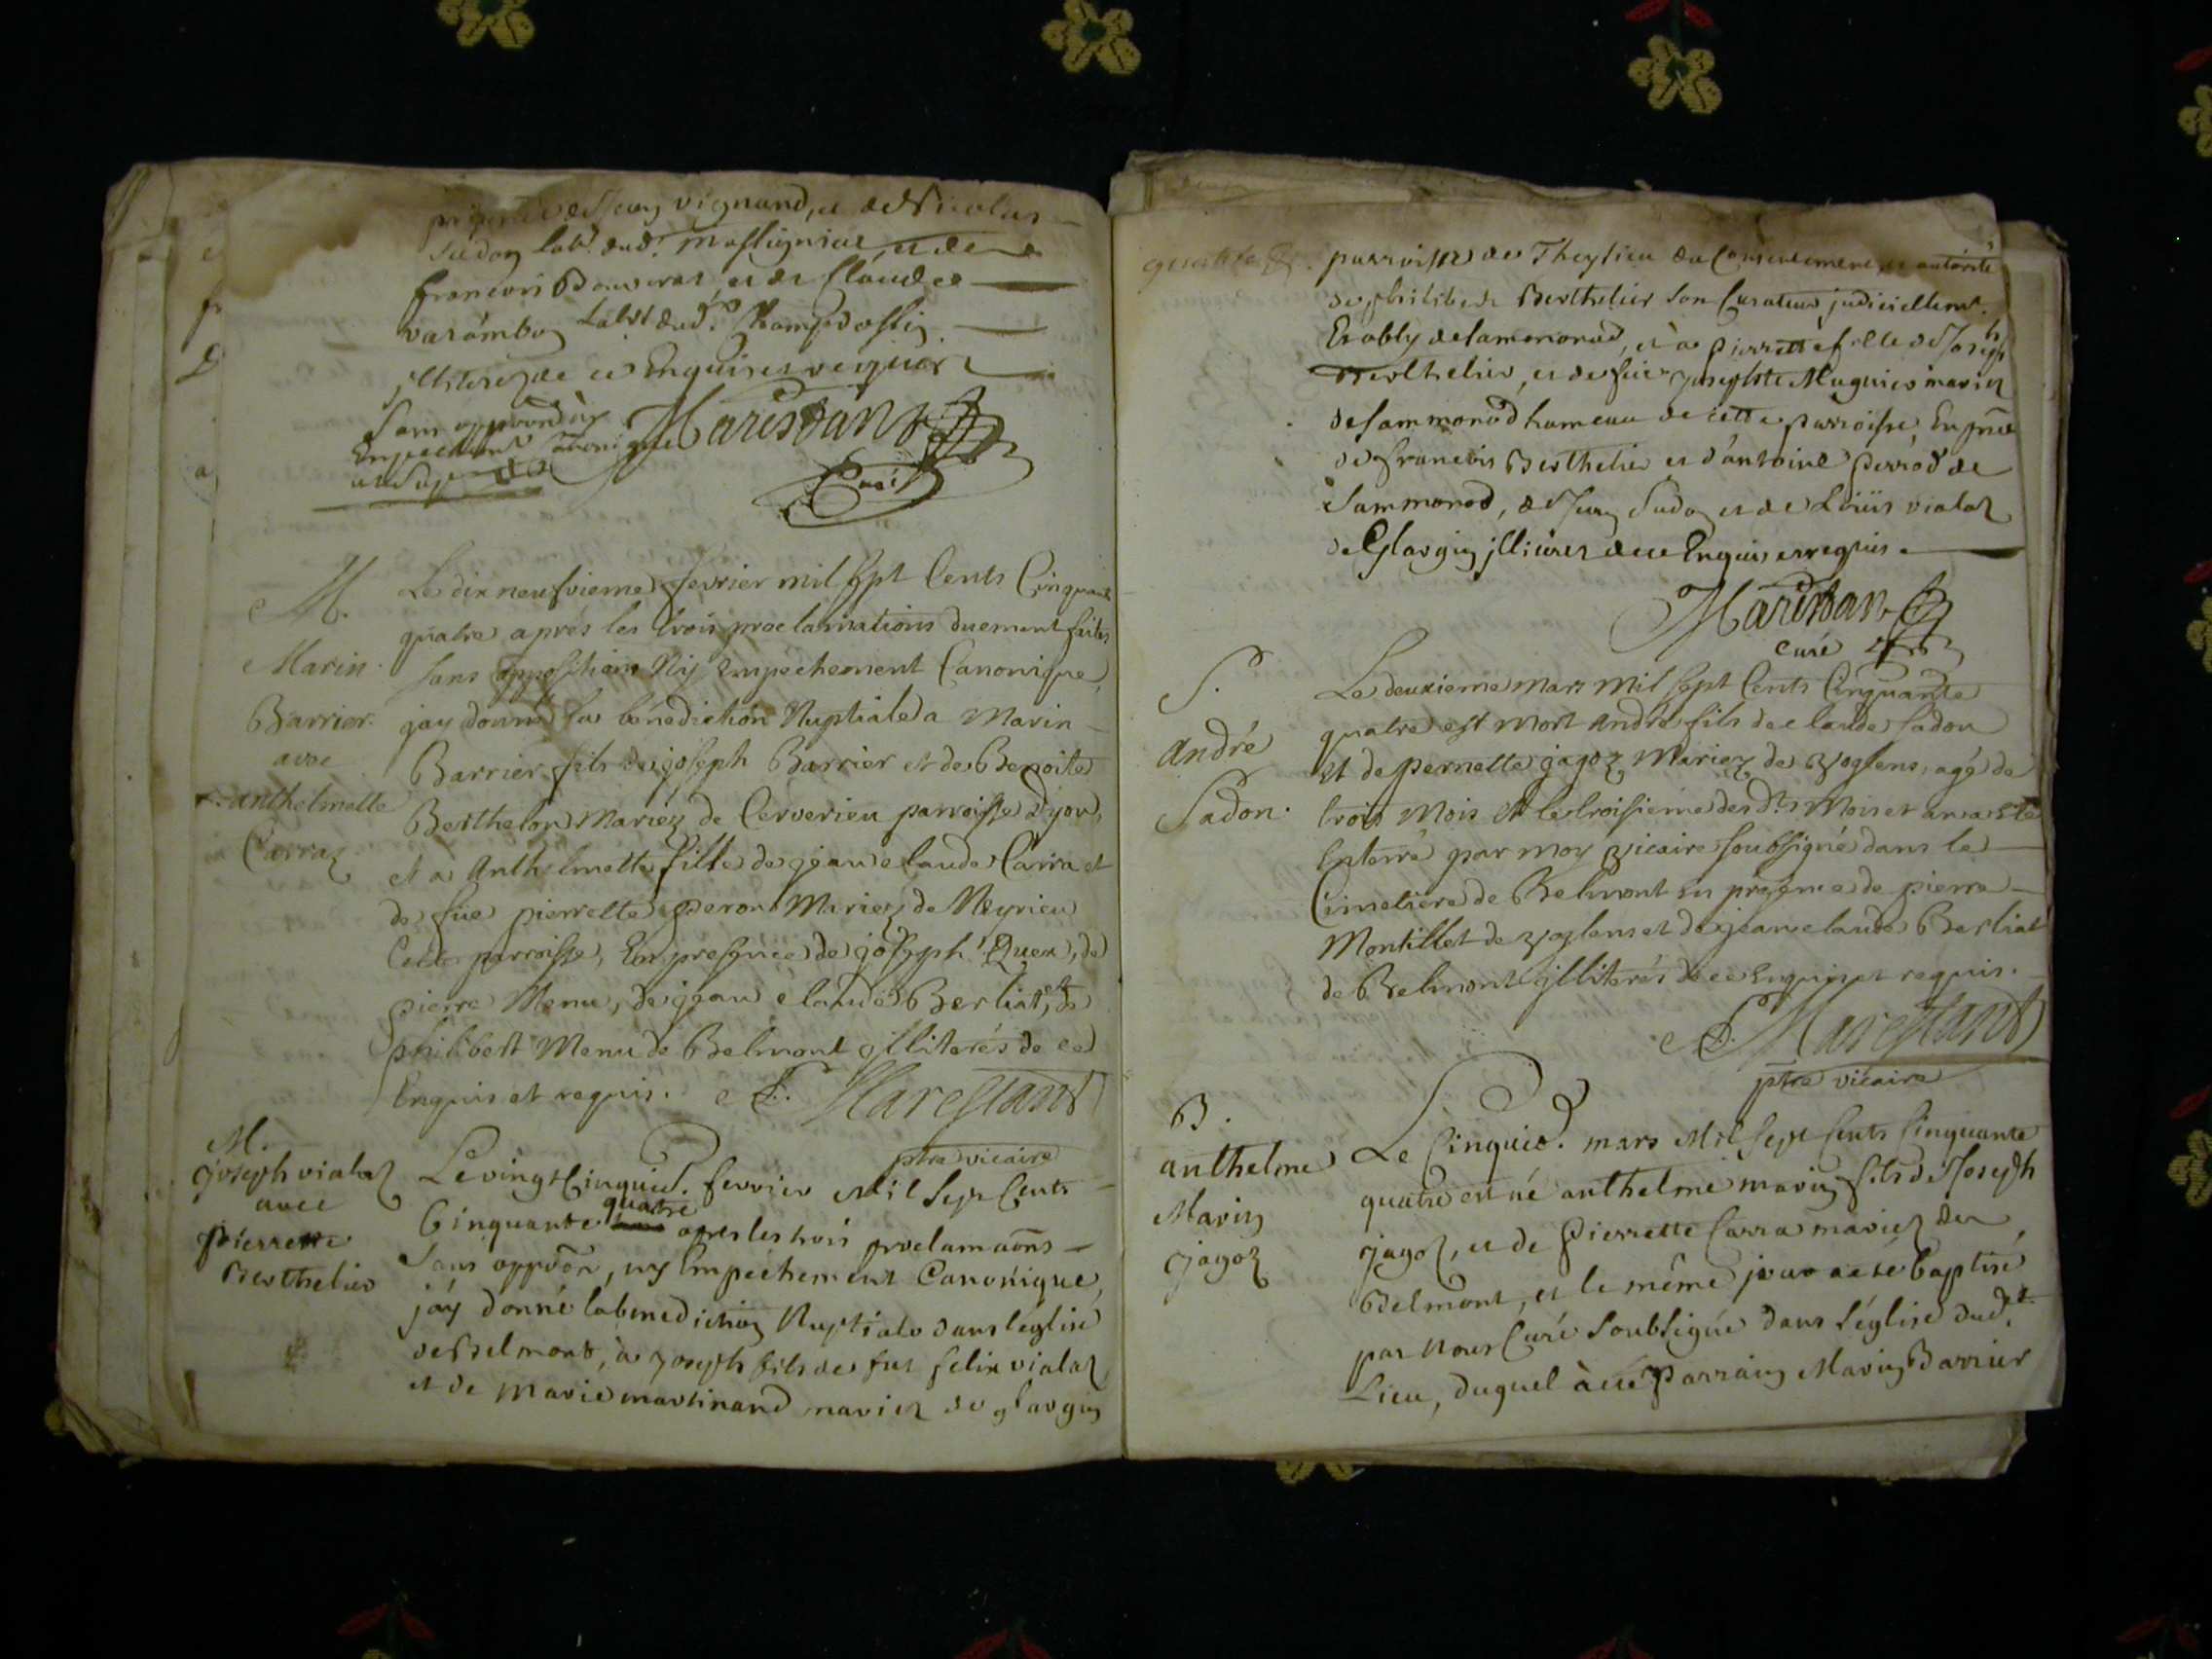 vignand, et de Nicolas
Sudon lab.r dud.t Massignieu et de
francois et de Claude
varambon Lab.rs dud.t
jlliterez de ce Enquis et requis
Sans oppoõn ny
Empechement Canonique
Marestan
Curé
M.
Marin
Barrier
avec
anthelmette
Carraz
Le dix neufvieme fevrier mil sept Cents Cinquante
quatre après les trois proclamations duement faites
sans opposition Ny Empechement Canonique,
jay donné la bénediction Nuptiale a Marin
Barrier fils de joseph Barrier et de Benoite
Berthelon Mariéz de Cerverieu parroisse d'yon,
et a Anthelmette fille de jean claude Carra et
de füe pierrette peron Mariez de Meyrieu
Cette parroisse, En presence de joseph Quex, de
pierre Menu, de jean claude Berliat, et de
philibert Menu de Belmont jlliterés de ce
Enquis et requis. Marestant
ptre vicaire
M.
joseph vialaz
avec
pierrette
Berthelier
Le vingt Cinquie. fevrier Mil Sept Cents
Cinquante quatre apres les trois proclamaõns
Sans oppoõn, ny Empechement Canonique,
jáy donné la benediction Nuptiale dans l'église
de Belmont, à Joseph fils de fut felix vialaz
et de Marie martinand mariez de glargin
parroisse de Theylieu du Consentement, et autorité
de philibert Berthelier son Curateur judiciellem.t
Etably de Sammonod, et à pierrette fille de Joseph
Berthelier, et de füe josephte Mugnier mariez
de Sammonod hameau de cette parroisse, En pñce
de francois Berthelier et d'antoine perrod de
Sammonod, de Jean Sudon et de Loüis vialaz
de Glargin jlliterez de ce Enquis et requis.
Marestan
curé
S.
andré
Sadon.
Le deuxieme Mars Mil sept Cents Cinquante
quatre est mort André fils de claude Sadon
et de pernette jagoz Mariez de voglens, agé de
trois Mois et le troisieme des d.ts Mois et an a Eté
Enterré par moy vicaire soubsigné dans le
Cimetiere de Belmont En presence de pierre
Montillet de voglens et de jean claude Berliat
de Belmont jlliterés de ce Enquis et requis.
Marestant
ptre vicaire
B.
anthelme
Marin
jagoz
Le Cinquie. mars Mil Sept Cents Cinquante
quatre est né anthelme marin fils de Joseph
jagoz, et de Pierrette Carra mariez de
Belmont, et le même jour a eté baptisé
par Nous Curé Soubsigné dans l'église dud.t
Lieu, duquel à eté Parrain Marin Barrier